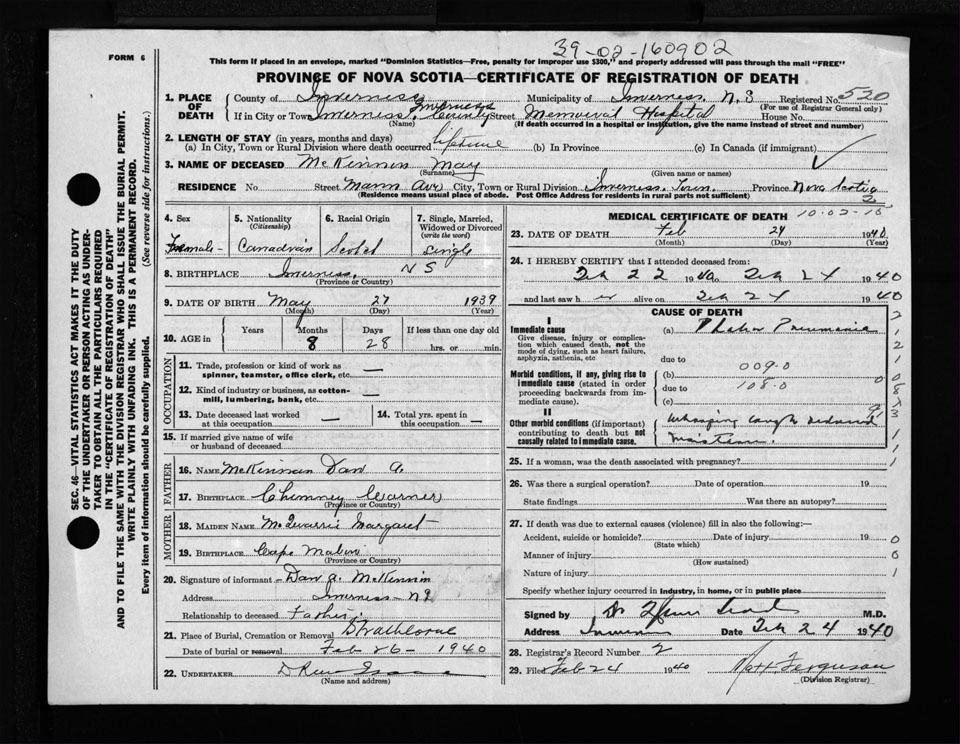 39-02-160902
FORM 6
This form if placed in an envelope, marked "Dominion Statistics—Free, penalty for improper use $300," and properly addressed will pass through the mail "FREE"
PROVINCE OF NOVA SCOTIA—CERTIFICATE OF REGISTRATION OF DEATH
1. PLACE OF DEATH County of Inverness Municipality of Inverness. N.S Registered No. 520
(For use of Registrar General only)
If in City or Town Inverness. Inverness County Street Memorial Hospital
(Name) (If death occurred in a hospital or institution, give the name instead of street and number)
2. LENGTH OF STAY (in years, months and days)
(a) In City, Town or Rural Division where death occurred lifetime (b) In Province (c) In Canada (if immigrant)
3. NAME OF DECEASED McKinnon May
(Surname) (Given name or names)
RESIDENCE No. Street Mann Ave City, Town or Rural Division Inverness. Town. Province Nova Scotia
(Residence means usual place of abode. Post Office Address for residents in rural parts not sufficient) 2
4. Sex 5. Nationality 6. Racial Origin 7. Single, Married,
(Citizenship) Widowed or Divorced
(write the word)
Female - Canadian Scotch Single
8. BIRTHPLACE Inverness. N S
(Province or Country)
9. DATE OF BIRTH May 27 1939
(Month) (Day) (Year)
10. AGE in Years Months Days If less than one day old
8 28 hrs. or min.
OCCUPATION
11. Trade, profession or kind of work as
spinner, teamster, office clerk, etc. —
12. Kind of industry or business, as cotton-
mill, lumbering, bank, etc. —
13. Date deceased last worked at this occupation — 14. Total yrs. spent in this occupation —
15. If married give name of wife
or husband of deceased
FATHER
16. NAME McKinnon Dan A.
17. BIRTHPLACE Chimney Corner
(Province or Country)
MOTHER
18. MAIDEN NAME McQuarrie Margaret
19. BIRTHPLACE Cape Mabou
(Province or Country)
20. Signature of informant - Dan A. McKinnon
Address Inverness - NS
Relationship to deceased Father.
21. Place of Burial, Cremation or Removal Strathlorne
Date of burial or removal Feb 26 - 1940
22. UNDERTAKER
(Name and address)
MEDICAL CERTIFICATE OF DEATH 10-02-16
23. DATE OF DEATH Feb 24 1940
(Month) (Day) (Year)
24. I HEREBY CERTIFY that I attended deceased from:
Feb 22 1940 to Feb 24 1940
and last saw h er alive on Feb 24 1940
CAUSE OF DEATH
I
Immediate cause (a) Pneumonia
Give disease, injury or complica-
tion which caused death, not the
mode of dying, such as heart failure,
asphyxia, asthenia, etc due to
Morbid conditions, if any, giving rise to (b) 009.0
immediate cause (stated in order due to 108.0
proceeding backwards from im-
mediate cause). (c)
II
Other morbid conditions (if important) Whooping cough
contributing to death but not
causally related to immediate cause.
25. If a woman, was the death associated with pregnancy?
26. Was there a surgical operation? Date of operation 19
State findings Was there an autopsy?
27. If death was due to external causes (violence) fill in also the following:—
Accident, suicide or homicide? Date of injury 19
(State which)
Manner of injury
(How sustained)
Nature of injury
Specify whether injury occurred in industry, in home, or in public place
Signed by Dr M.D.
Address Date Feb 24 1940
28. Registrar's Record Number 2
29. Filed Feb 24 1940 Ferguson
(Division Registrar)
SEC. 46—VITAL STATISTICS ACT MAKES IT THE DUTY
OF THE UNDERTAKER OR PERSON ACTING AS UNDER-
TAKER TO OBTAIN ALL THE PARTICULARS REQUIRED
IN THE "CERTIFICATE OF REGISTRATION OF DEATH"
AND TO FILE THE SAME WITH THE DIVISION REGISTRAR WHO SHALL ISSUE THE BURIAL PERMIT.
WRITE PLAINLY WITH UNFADING INK. THIS IS A PERMANENT RECORD.
Every item of information should be carefully supplied. (See reverse side for instructions.)